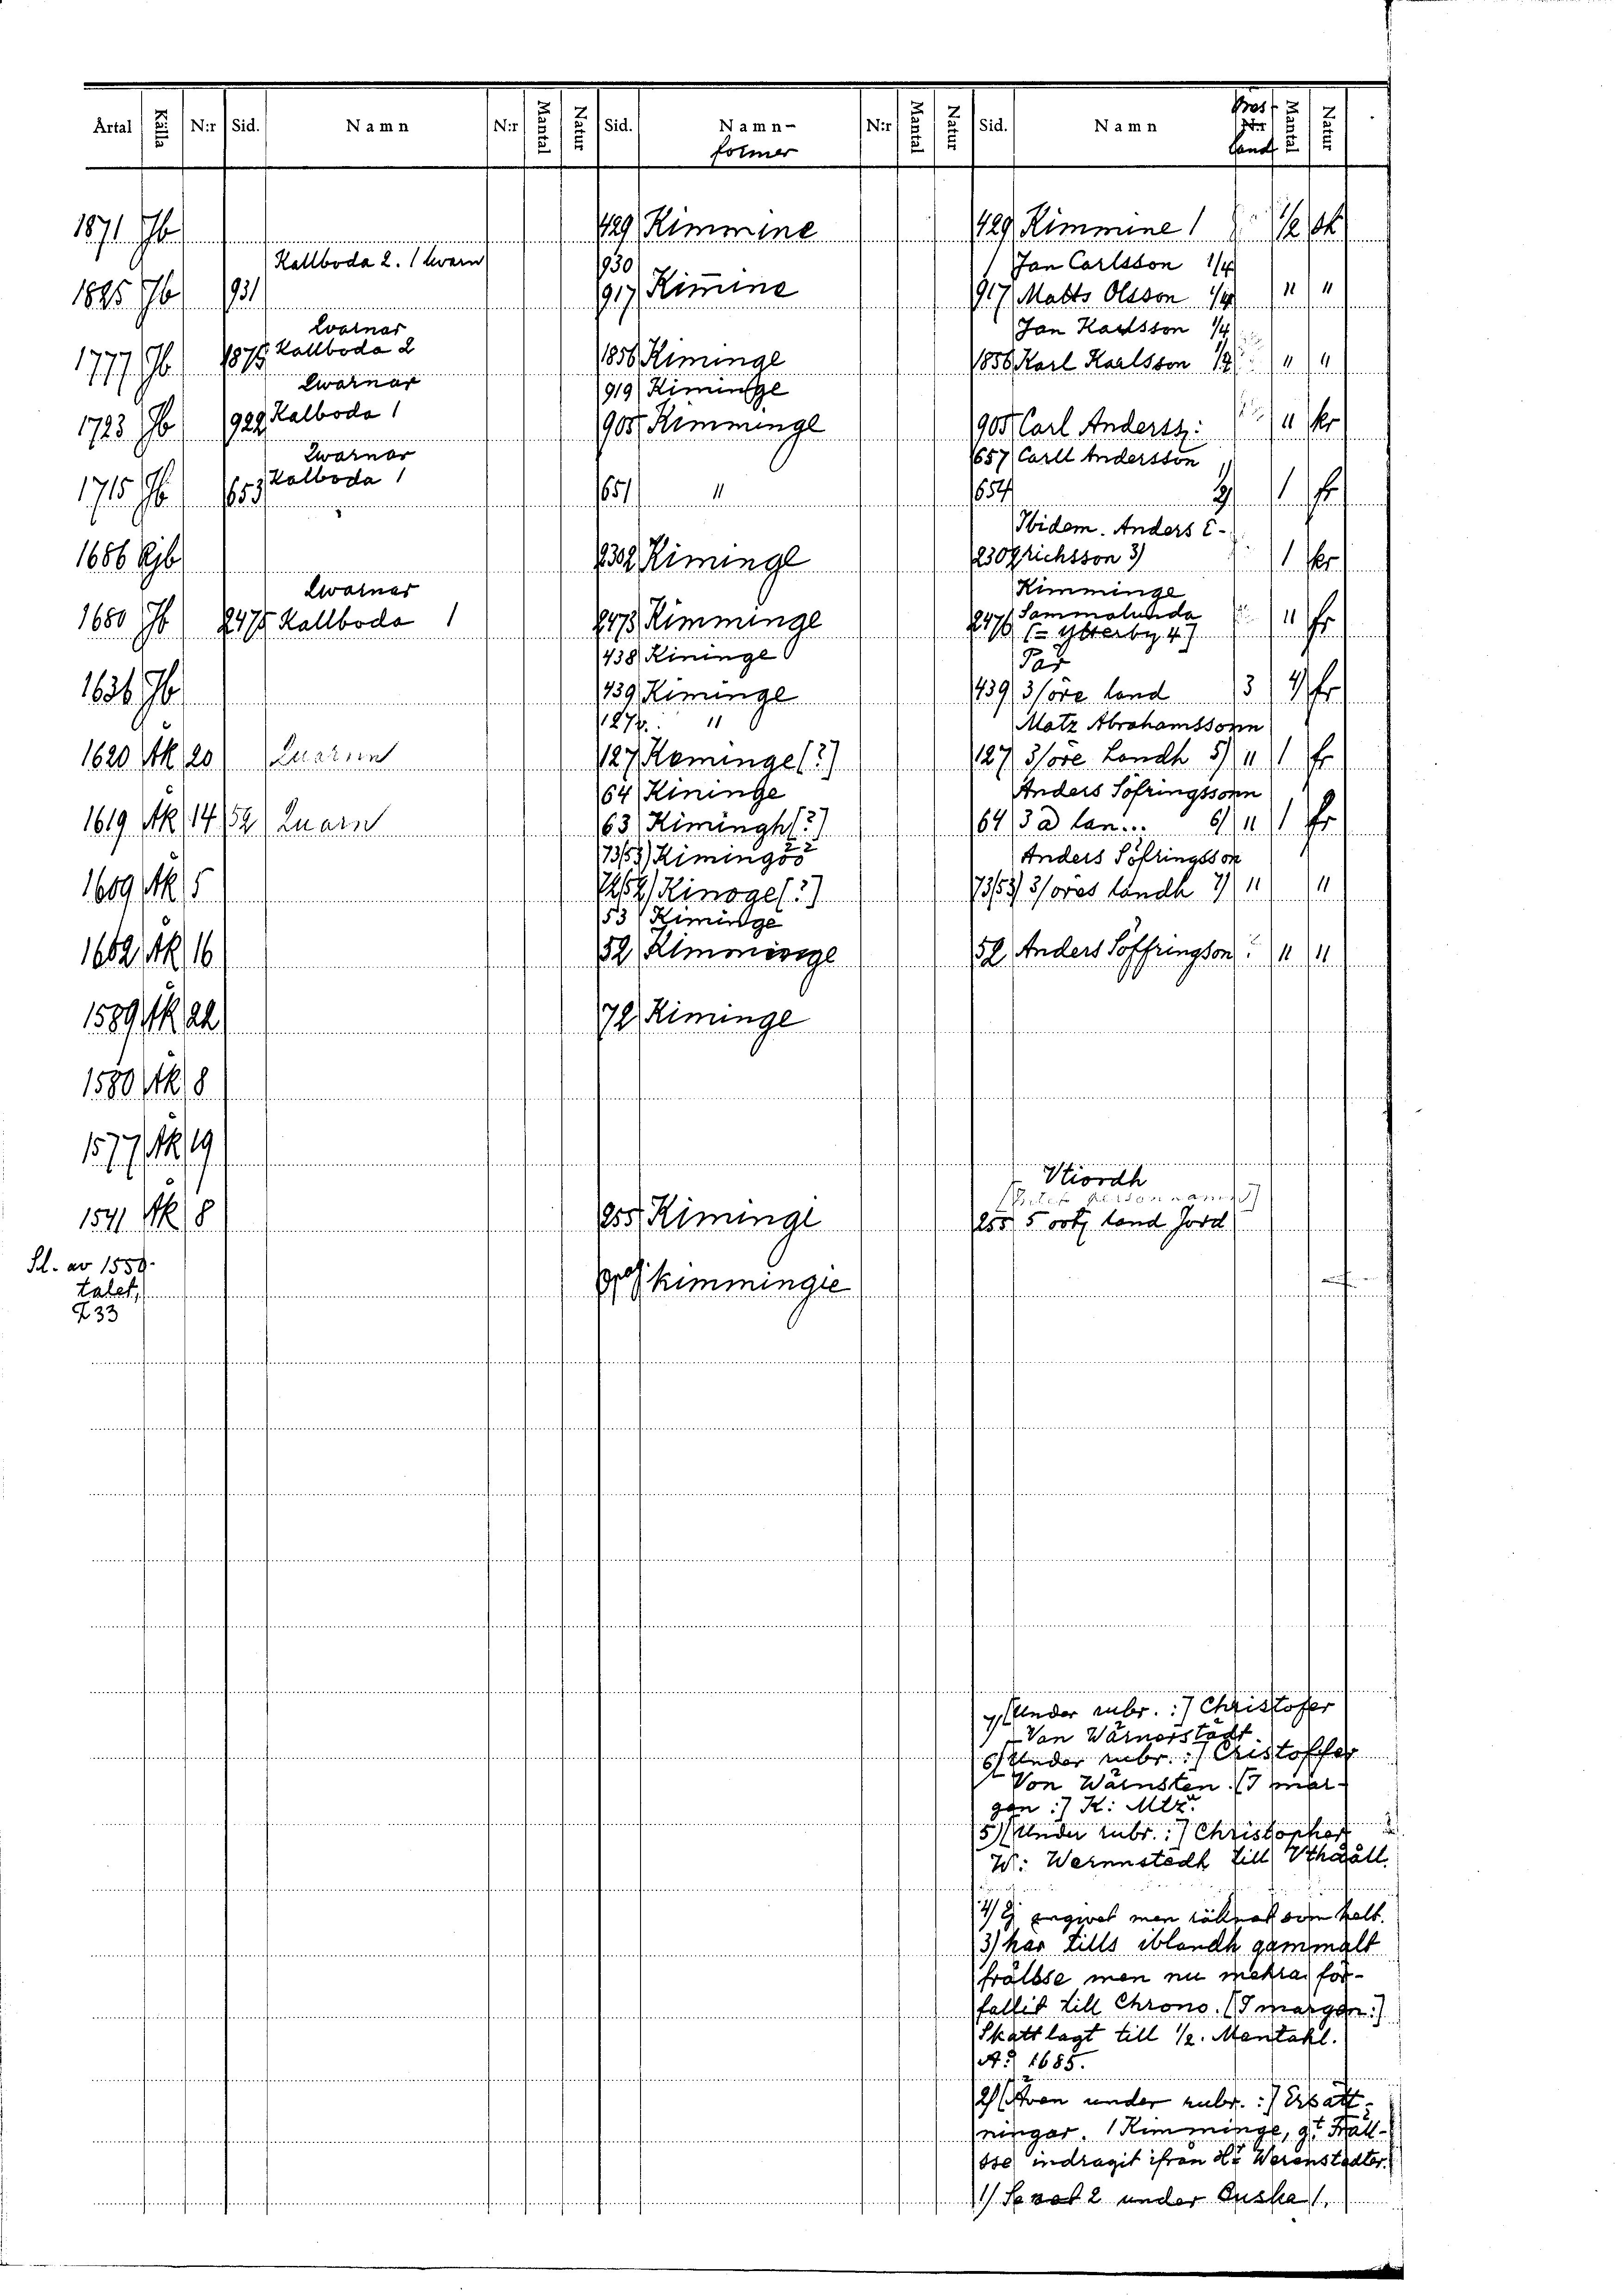 Årtal Källa N:r Sid. Namn N:r Mantal Natur Sid. Namn- N:r Mantal Natur Sid. Namn Mantal Natur
former land
1871 Jb 429 Kimmine 429 Kimmine 1 1/2 sk
Kallboda 2. 1 kvarn 930 Jan Carlsson 1/4
1825 Jb 931 917 Kim̄ine 917 Matts Olsson 1/4 " "
Qvarnar Jan Karlsson 1/4
1777 Jb 1875 Kallboda 2 1856 Kiminge 1856 Karl Karlsson 1/4 " "
Qwarnar 919 Kiminge
1723 Jb 922 Kalboda 1 905 Kimminge 905 Carl Anderss: " kr
Qwarnar 657 Carll Andersson
1715 Jb 653 Kalboda 1 651 " 654 2) 1 fr
Ibidem. Anders E-
1686 Rjb 2302 Kiminge 2302 richsson 3) 1 kr
Qwarnar Kimminge
1680 Jb 2475 Kallboda 1 2473 Kimminge 2476 Sammalunda " fr
[= Ytterby 4]
438 Kininge Pär
1636 Jb 439 Kiminge 439 3/öre land 3 4) fr
127v. " Matz Abrahamssonn
1620 Ak 20 Quarnn 127 Keminge[?] 127 3/öre Landh 5) " 1 fr
64 Kininge Anders Söfringssonn
1619 Ak 14 52 Quarn 63 Kimingh[?] 64 3 a lan... 6) " 1 fr
73/53) Kimingöö Anders Söfringsson
1609 Ak 5 72/52) Kinoge[?] 73/53) 3/öres landh 7) " "
53 Kiminge
1602 Ak 16 52 Kimminge 52 Anders Söffringson " "
1589 Ak 22 72 Kiminge
1580 Ak 8
1577 Ak 19
Vtiordh
1541 Ak 8 255 Kiminge 255 5 land Jord
Sl. av 1550- kimmingie
talet,
Z33
7) [Under rubr. :] Christofer
Von Wärnerstadt
6) [Under rubr. :] Cristoffer
Von Wärnsten. [I mar-
gen :] K: Mtz.
5) [Under rubr. :] Christopher
W: Wernnstedh till Vthääll.
4) Ej angivet men räknat som helt.
3) här tills iblandh gammalt
frälsse men nu mehra för-
fallit till Chrono. [I margen:]
Skattlagt till 1/2. Mantahl.
A:o 1685.
2) [Även under rubr. :] Ersätt-
ningar. 1 Kimminge, gt. Fräll-
sse indragit ifrån Hr Werenstedter.
1) Se not 2 under Kuska 1.